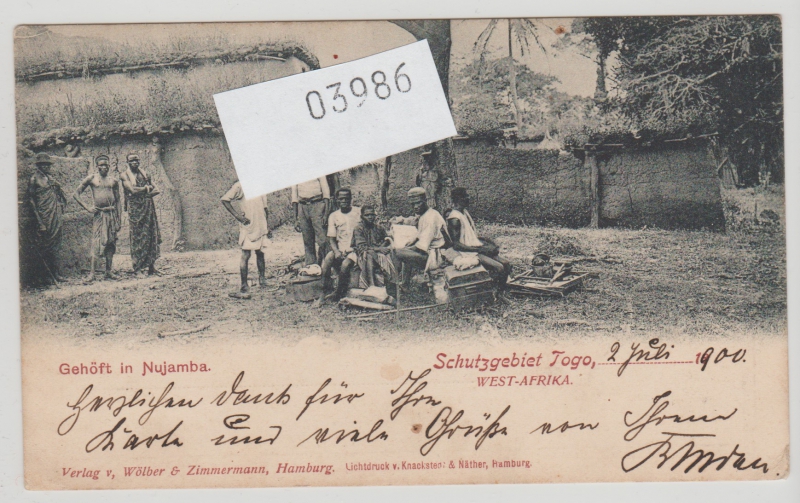 03986
Gehöft in Nujamba.
Schutzgebiet Togo, 2 Juli 1900.
WEST-AFRIKA.
Herzlichen Dank für Ihre
Karte und viele Grüße von Ihrem
Verlag v, Wölber & Zimmermann, Hamburg. Lichtdruck v. Knackstedt & Näther, Hamburg.